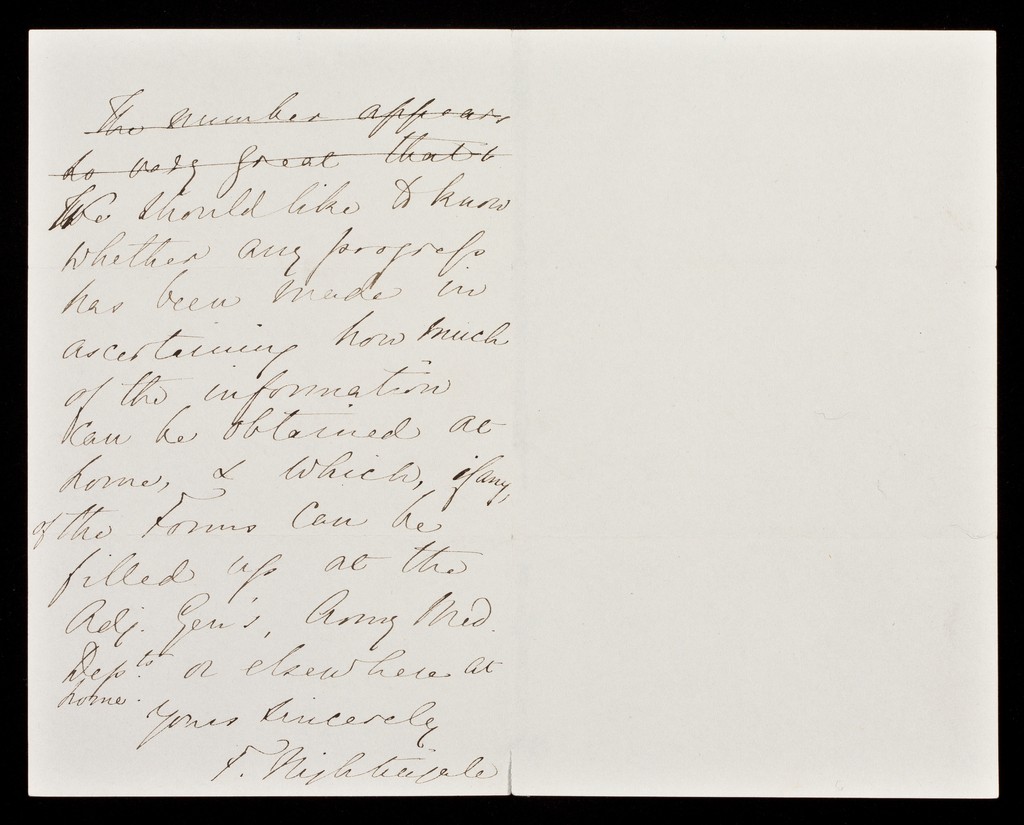 The number appears
so very great that
We should like to know
whether any progress
has been made in
ascertaining how much
of the information
can be obtained at
home, & which, if any,
of the Forms can be
filled up at the
Adj. Gen's, Army Med.
Depts. or elsewhere at
home.
Yours sincerely
F. Nightingale